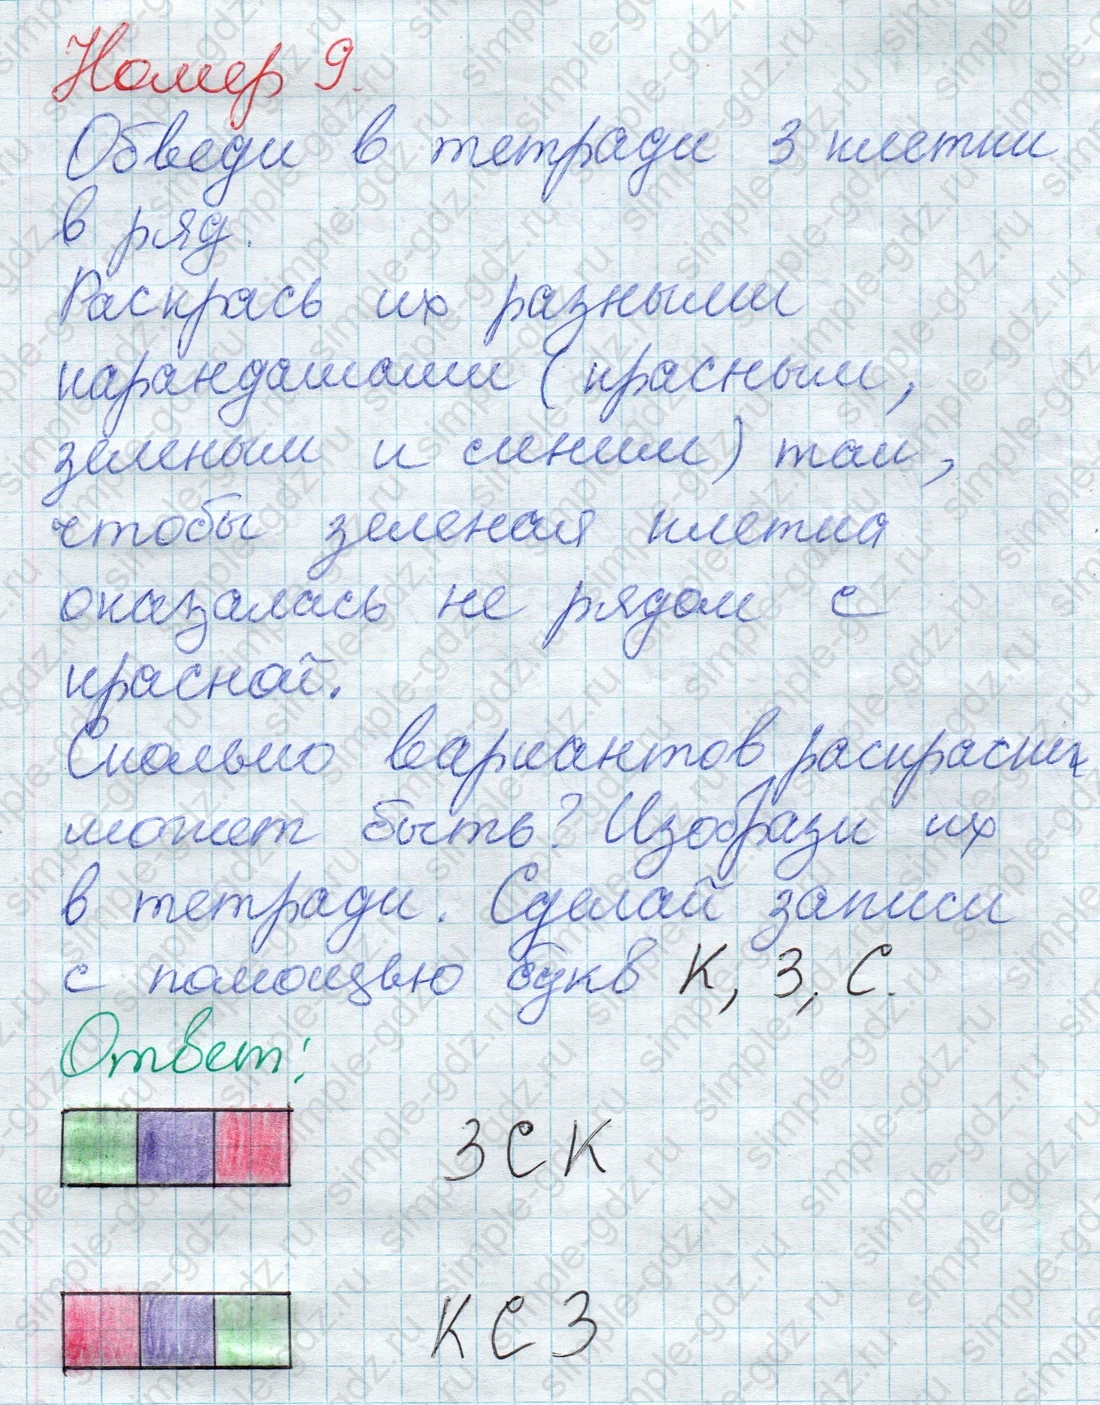 Номер 9.
Обведи в тетради 3 клетки
в ряд.
Раскрась их разными
карандашами (красным,
зеленым и синим) так,
чтобы зеленая клетка
оказалась не рядом с
красной.
Сколько вариантов раскраски
может быть? Изобрази их
в тетради. Сделай записи
с помощью букв К, З, С.
Ответ:
ЗСК
КСЗ
simple-gdz.ru